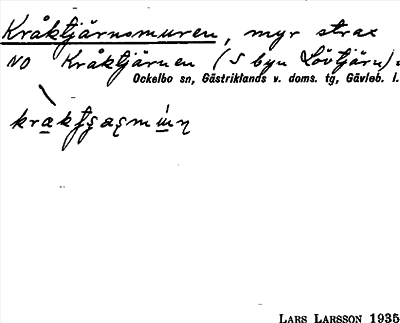 Kråktjärnsmuren, myr strax
NO Kråktjärnen (S byn Lövtjärn).
Ockelbo sn, Gästriklands v. doms. tg, Gävleb. l.
LARS LARSSON 1935